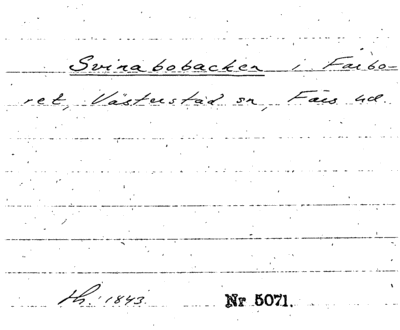 Svinabobacken i Fairbo-
ret, Västerstad sn, Färs hd.
th. 1843. Nr 5071.